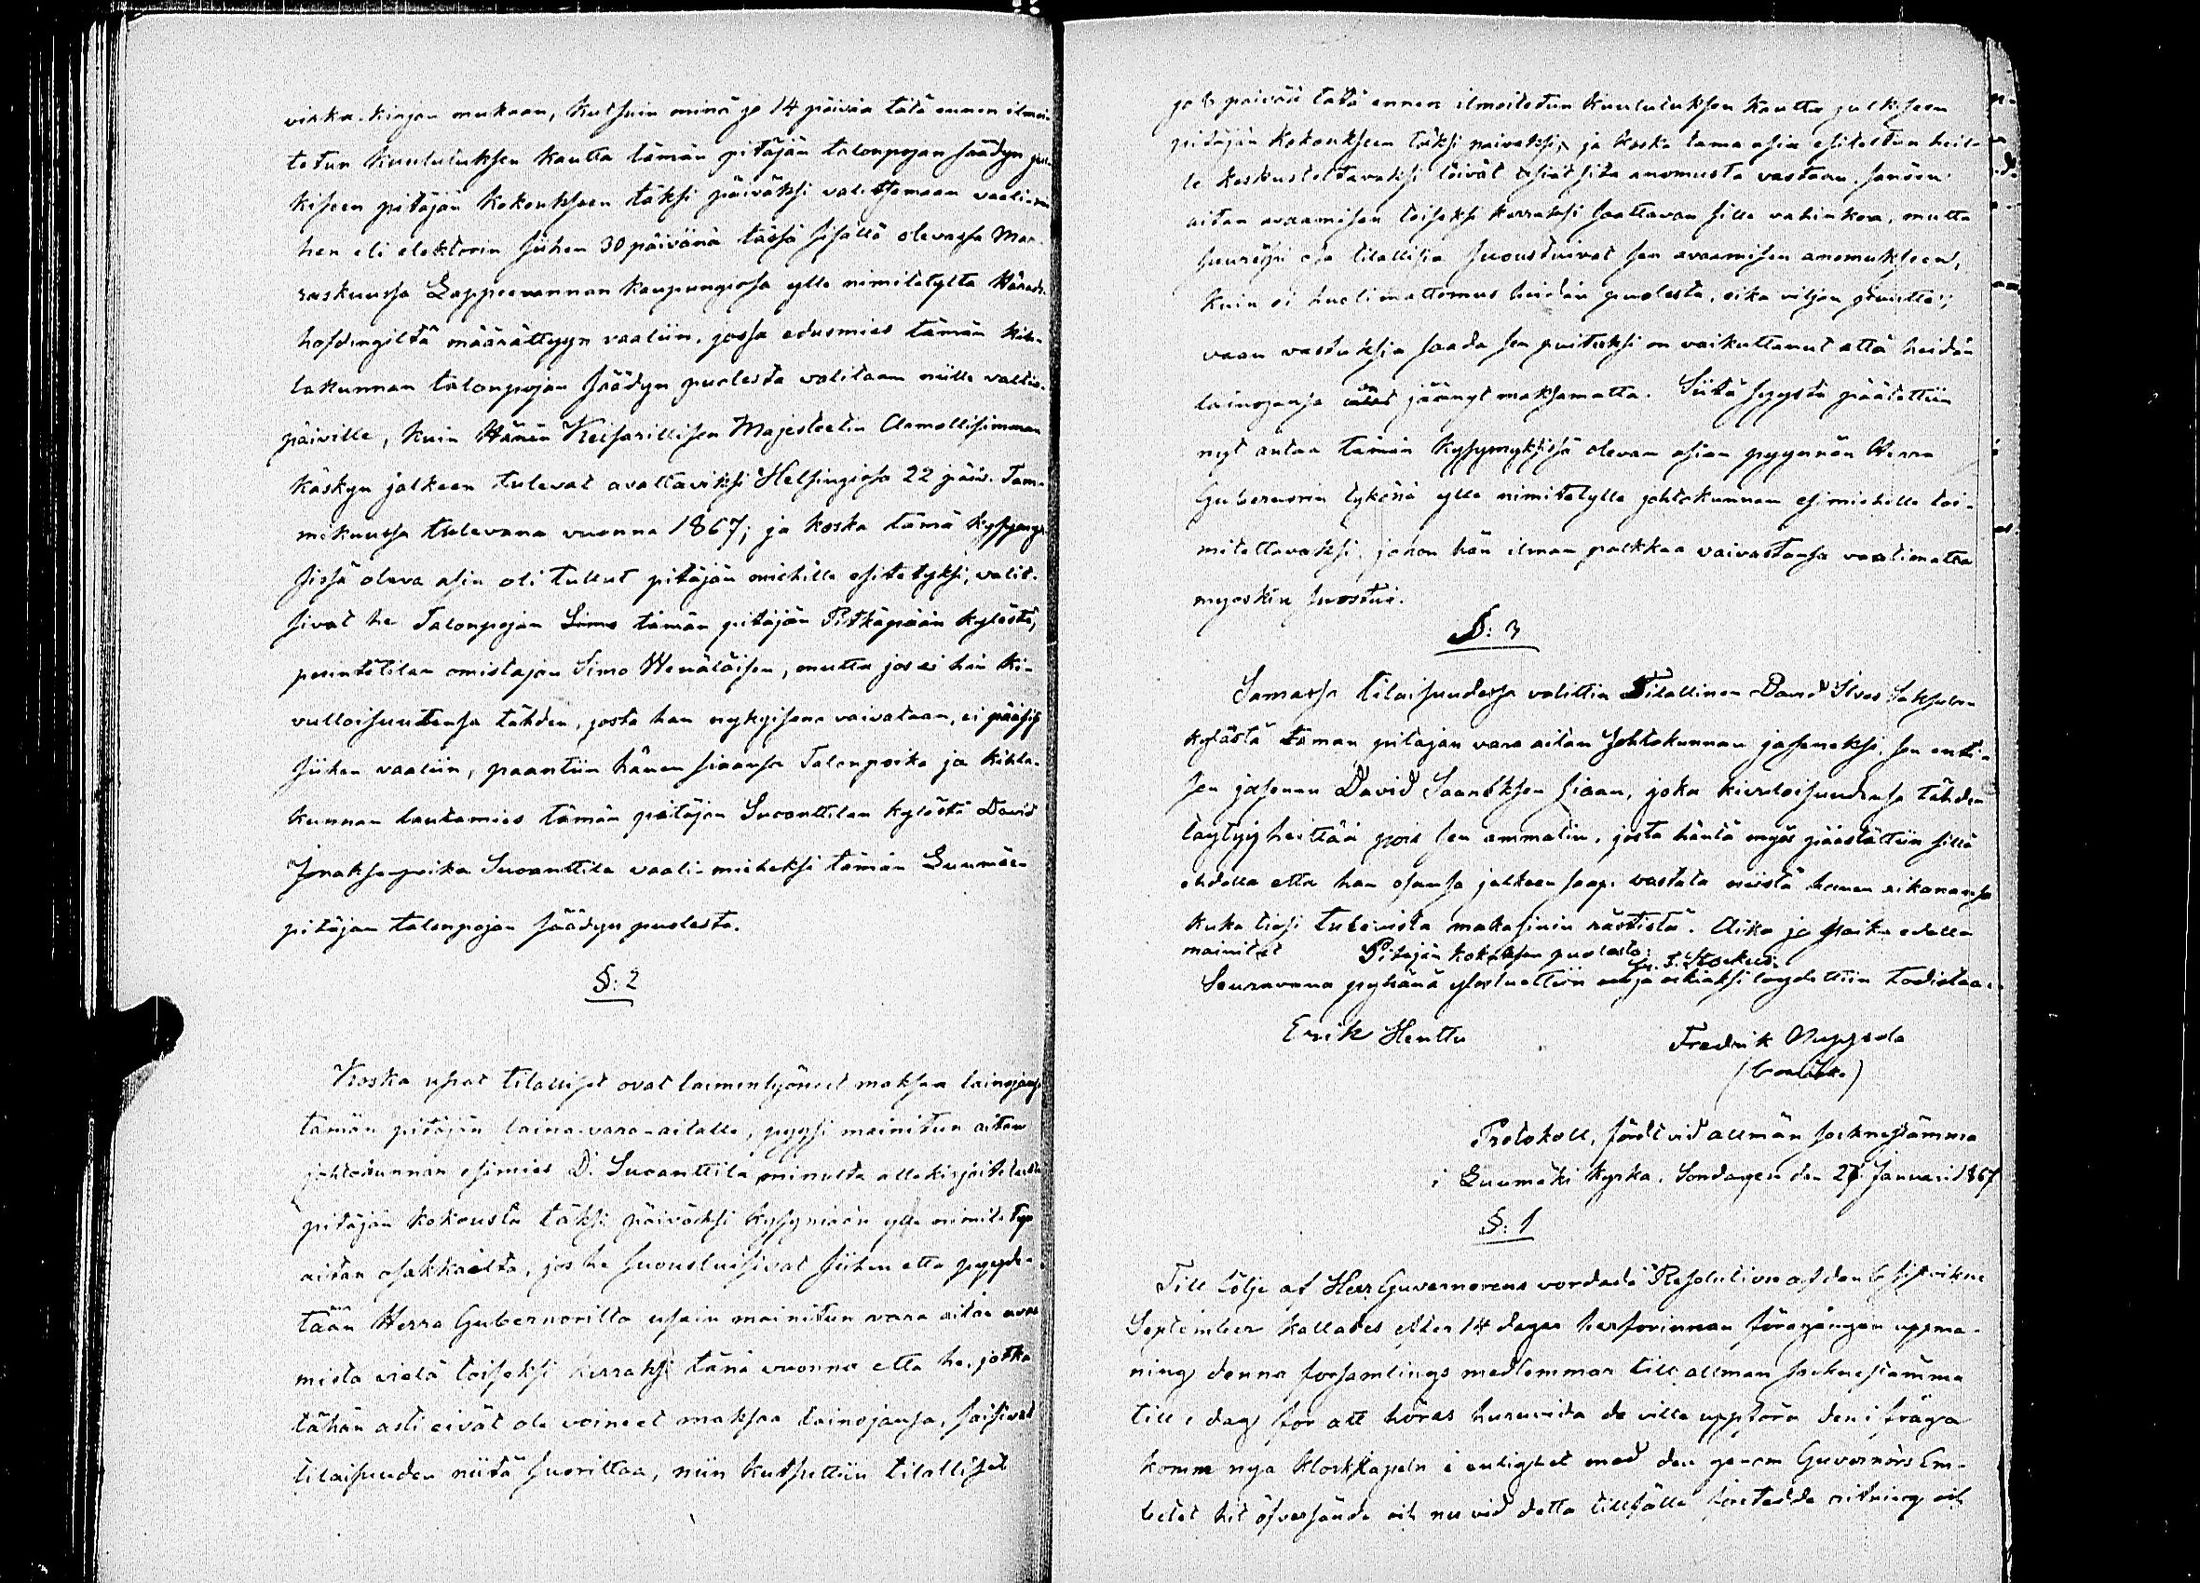 virka-kirjan mukaan, kutsuin minä jo 14 päivää tätä ennen ilmoi-
tetun kuulutuksen kautta tämän pitäjän talonpojan säädyn jul-
kiseen pitäjän kokoukseen täksi päiväksi valitsemaan vaali-mie-
hen eli elektorin siihen 30 päivänä tässä sisällä olevassa Mar-
raskuussa Lappeenrannan kaupungissa ylle nimitetyltä Härads-
höfdingiltä määrättyyn vaaliin, jossa edusmies tämän Kih-
lakunnan talonpojan säädyn puolesta valitaan niille valtio-
päiville, kuin Hänen Keisarillisen Majesteetin Armollisimman
käskyn jälkeen tulevat avattaviksi Helsingissä 22 päiv. Tam-
mikuussa tulevana vuonna 1867; ja koska tämä kysymyk-
sissä oleva asia oli tullut pitäjän miehille esitetyksi, valit-
sivat he Talonpojan Simo tämän pitäjän Pitkäpään kylästä,
perintötilan omistajan Simo Wenäläisen, mutta jos ei hän ki-
vulloisuutensa tähden, josta hän nykyisenä vaivataan, ei pääsis
siihen vaaliin, paantiin hänen siaansa Talonpoika ja Kihla-
kunnan lautamies tämän pitäjän Suoanttilan kylästä David
Jonaksenpoika Suoanttila vaali-mieheksi tämän Luumäen
pitäjän talonpojan säädyn puolesta.
§: 2
Koska usiat tilalliset ovat laiminlyöneet maksaa lainojansa
tämän pitäjän laina-vara-aitalle, pyysi mainitun aitan
johtokunnan esimies D. Suoanttila minulta allekirjoitetulta
pitäjän kokousta täksi päiväksi kysymään ylle nimitetyn
aitan osakkailta, jos he suostuisivat siihen että pyyde-
tään Herra Gubernorilta usein mainitun vara aitan avaa
mista vielä toiseksi kerraksi tänä vuonna että he, jotka
tähän asti eivät ole voineet maksaa lainojansa, saisivat
tilaisuuden niitä suorittaa, niin kutsuttiin tilalliset
jo 14 päivää tätä ennen ilmoitetun kuulutuksen kautta julkiseen
pitäjän kokoukseen täksi päiväksi, ja koska tämä asia esiteltiin heil-
le keskusteltavaksi löivät usiat sitä anomusta vastaan, sanoen
aitan avaamisen toiseksi kerraksi saattavan sille vahinkoa, mutta
suurin osa tilallisia suostuivat sen avaamisen anomukseen,
kuin ei huolimattomus heidän puolesta, eikä viljan puutto,
vaan vastuksia saada sen puituksi on vaikuttanut että heidän
lainojansa on jäänyt maksamatta. Siitä syystä päätettiin
nyt antaa tämän kysymyksissä olevan asian pyynnön Herra
Gubernorin tykönä ylle nimitetylle johtokunnan esimiehelle toi-
mitettavaksi, johon hän ilman palkkaa vaivastansa vaatimatta
myöskin suostui.
§: 3
Samassa tilaisuudessa valittiin Tilallinen David Ilves
kylästä tämän pitäjän vara aitan Johtokunnan jäseneksi, sen enti-
sen jäsenen David Saanoksen siaan, joka kivuloisuudensa tähden
täytyy heittää pois sen ammatin, josta häntä myös päästettiin sillä
ehdolla että hän osansa jälkeen saapi vastata niistä hänen aikanansa
kuka tiesi tulevista makasinin rästistä. Aika ja paikka edellä
mainitut Pitäjän kokouksen puolesta:
Seuravana pyhänä ylösluettiin ja oikiaksi löydettiin todistaa:
Erik Henttu Fredrik Uuppola
Protokoll, fördt vid allmän sockne stämma
i Luumäki Kyrka, Söndagen den 27 Januari 1867
§: 1
Till följe af Herr Guvernörens vördade Resolution af den 6 sistvikne
September kallades efter 14 dagar härförinnan föregången uppma-
ning denna församlings medlemmar till allmän sockne stämma
till i dag för att höras huruvida de ville uppföra den i fråga
komm nya klockstapeln i enlighet med den genom Guvernörs Em-
betet hit öfversända och nu vid detta tillfälle företedde ritning och